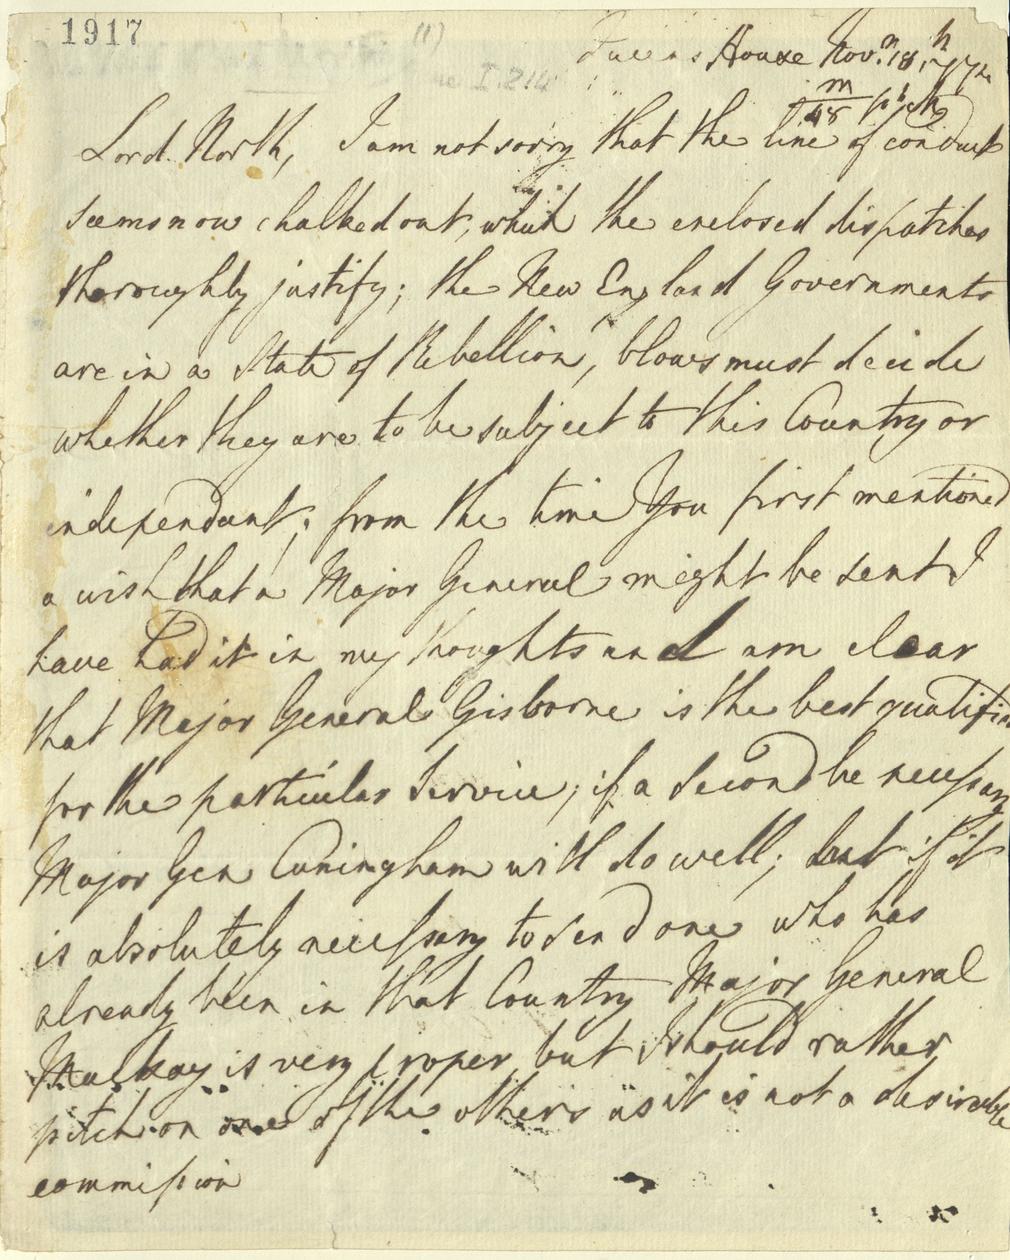 1917
(1)
I. 214
Queens House Nov.r 18.th 1774
m
48 pt
Lord North, I am not sorry that the line of conduct
seems now chalked out, which the enclosed dispatches
thoroughly justify; the New England Governments
are in a State of Rebellion, blows must decide
whether they are to be subject to this Country or
independant; from the time You first mentioned
a wish that a Major General might be sent I
have had it in my thoughts and I am clear
that Major General Gisborne is the best qualified
for the particular Service; if a Second be necessary
Major Gen Cuningham will do well; but if it
is absolutely necessary to send one who has
already been in that Country Major General
Mackay is very proper but I should rather
pitch on one of the others as it is not a desirable
commission